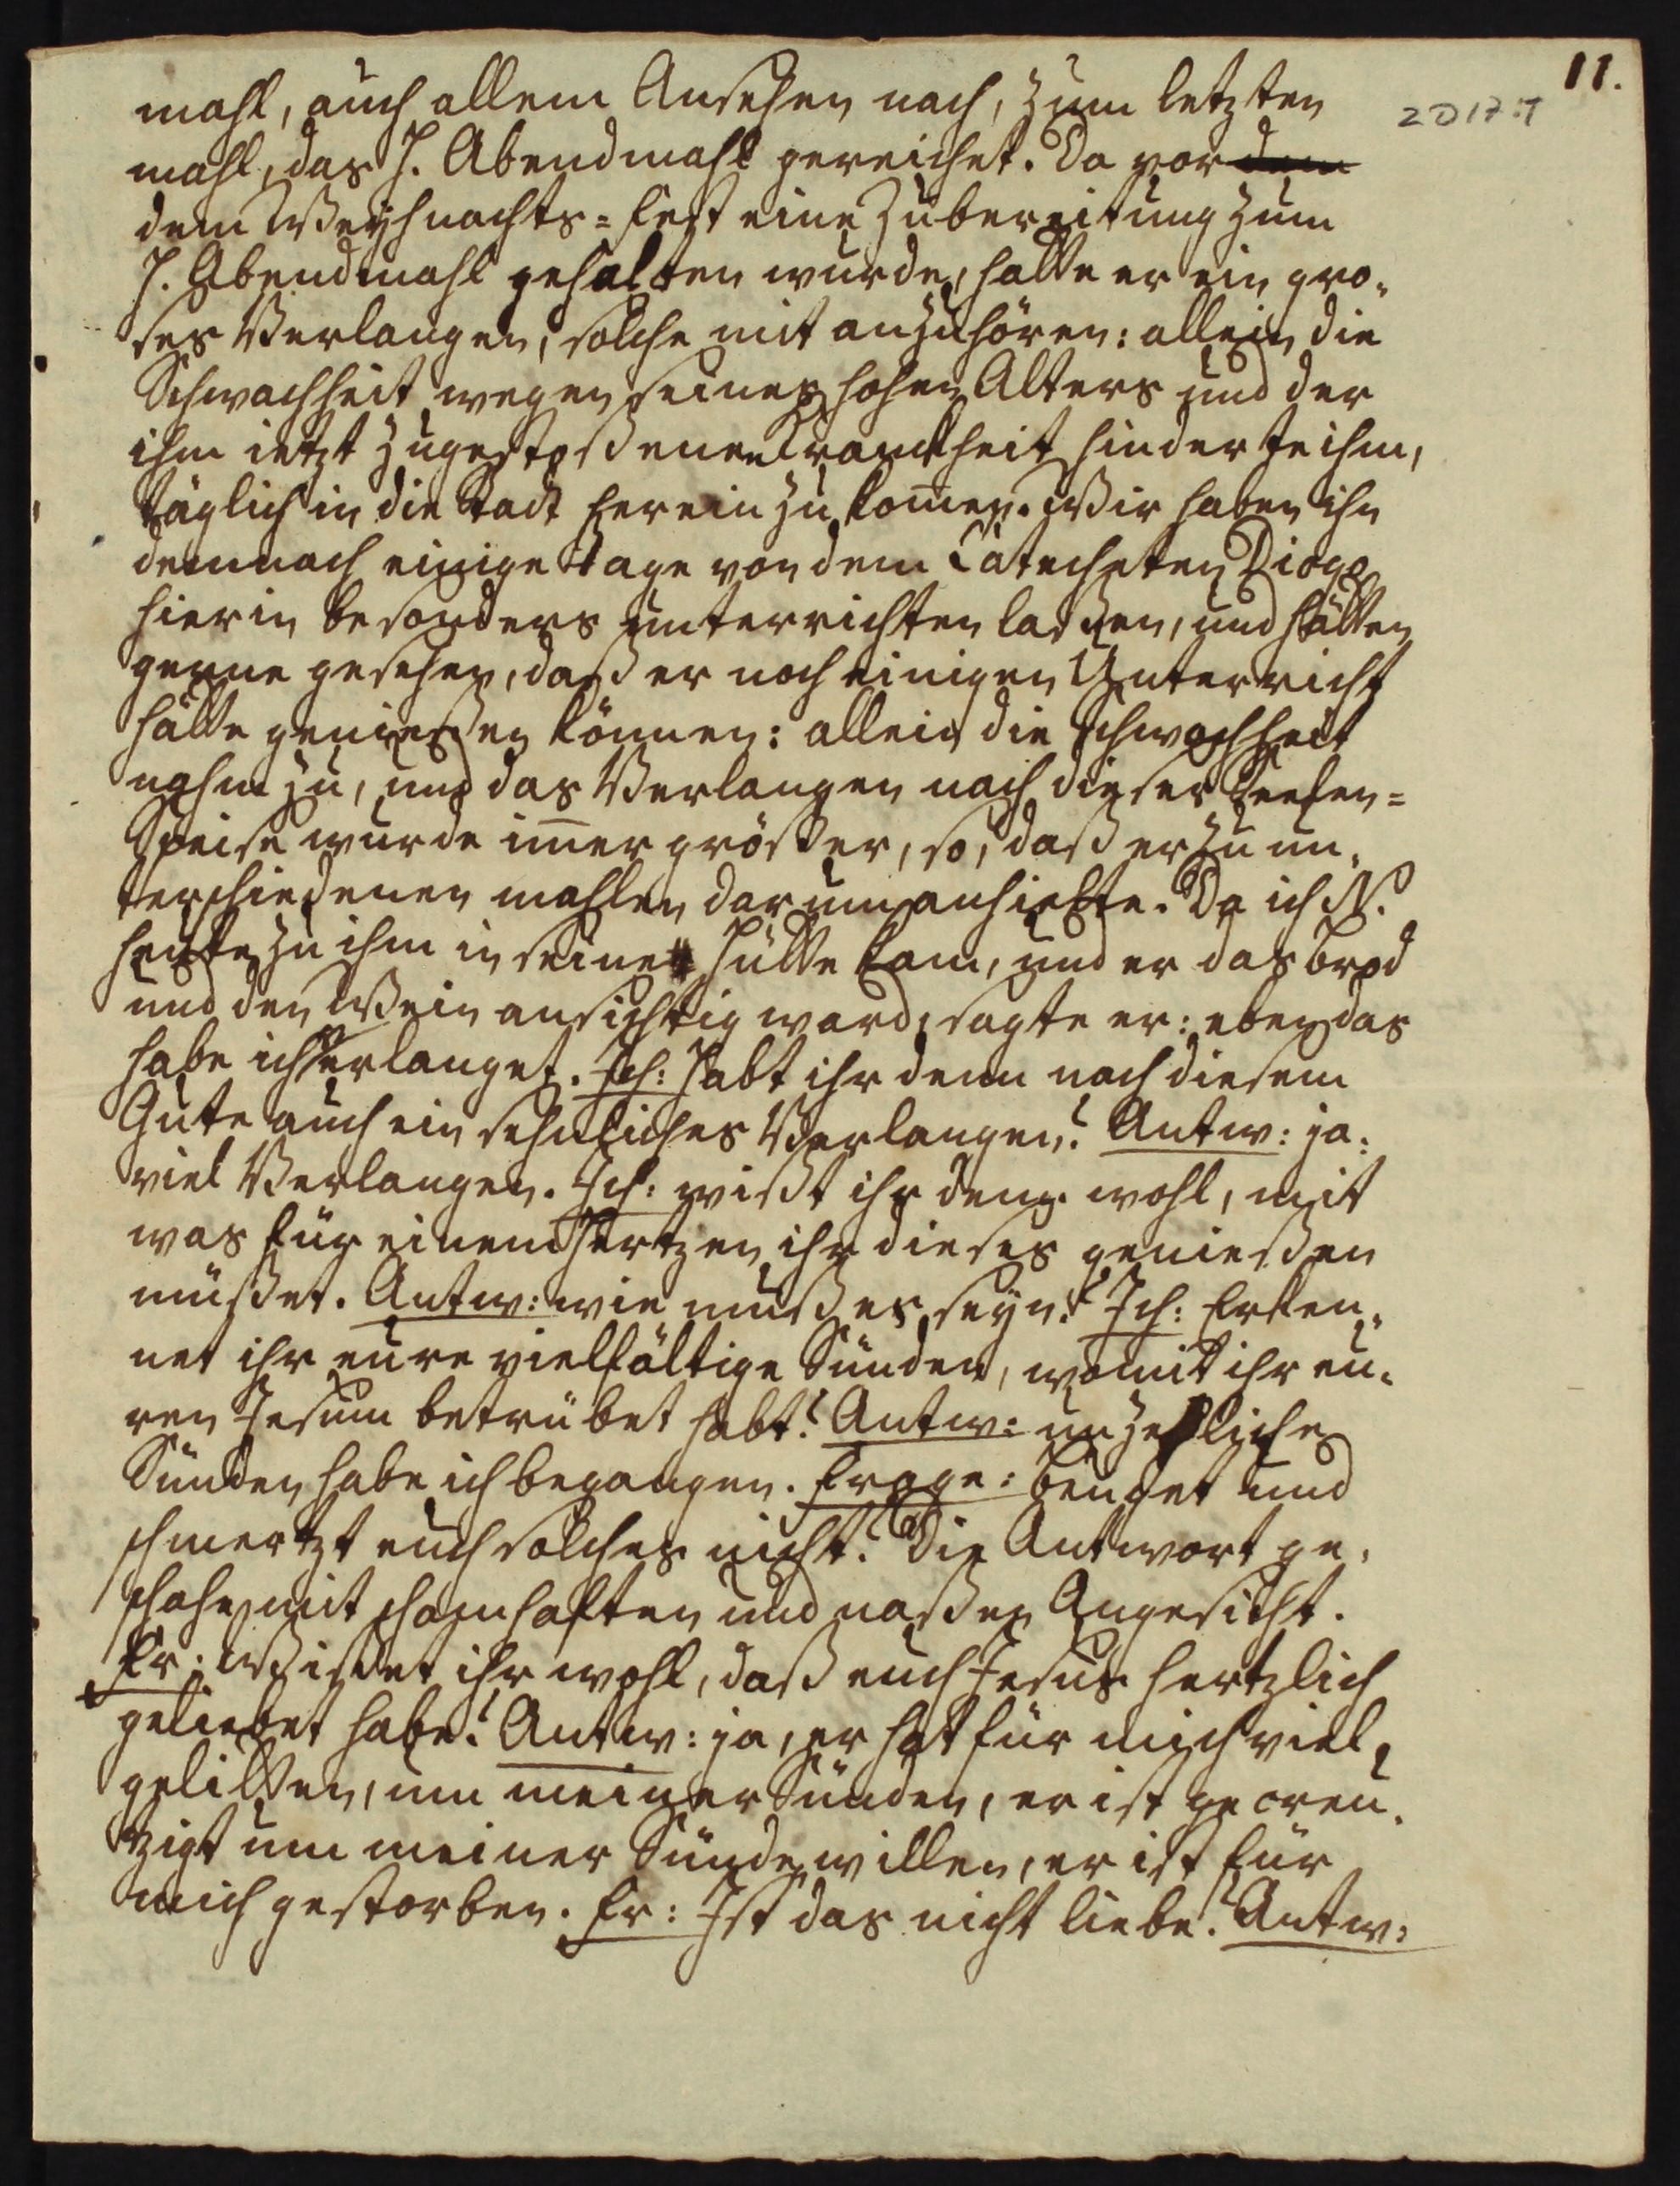 11.
2 D 17:7
mahl, auch allem Ansehen nach, zum letzten
mahl, das H. Abendmahl gereichet. Da vor dem
dem Weyhnachts-Fest eine Zubereitung zum
H. Abendmahl gehalten wurde, hatte er ein gro-
ses Verlangen, solche mit anzuhören: allein die
Schwachheit wegen seines hohen Alters und der
ihm ietzt zugestoßenen Kranckheit hinderte ihm,
täglich in die Stadt herein zu kom̅en. Wir haben ihn
demnach einige Tage von dem Catecheten Diogo
hierin besonders unterrichten laßen, und hätten
gerne gesehen, daß er noch einigen Unterricht
hätte genießen können: allein die Schwachheit
nahm zu, und das Verlangen nach dieser Seelen-
Speise wurde im̅er größer, so, daß er zu un-
terschiedenen mahlen darum anhielte. Da ich N.
heute zu ihm in seine Hütte kam, und er das Brod
und den Wein ansichtig ward, sagte er: eben das
habe ich verlanget. Ich: Habt ihr denn nach diesem
Gute auch ein sehnliches Verlangen? Antw: ja:
viel Verlangen. Ich: wißt ihr denn wohl, mit
was für einem Hertzen ihr dieses genießen
müßet. Antw: wie muß es seyn? Ich: Erken-
net ihr eure vielfältige Sünden, womit ihr eu-
ren Jesum betrübet habt? Antw: unzehliche
Sünden habe ich begangen. Frage: beuget und
schmertzt euch solches nicht? Die Antwort ge-
schahe mit schamhaften und naßen Angesicht.
Fr: Wißet ihr wohl, daß euch Jesus hertzlich
geliebet habe? Antw: ja, er hat für mich viel
gelitten, um meiner Sünden, er ist gecreu-
tzigt um meiner Sünde willen, er ist für
mich gestorben. Fr: Ist das nicht liebe? Antw: